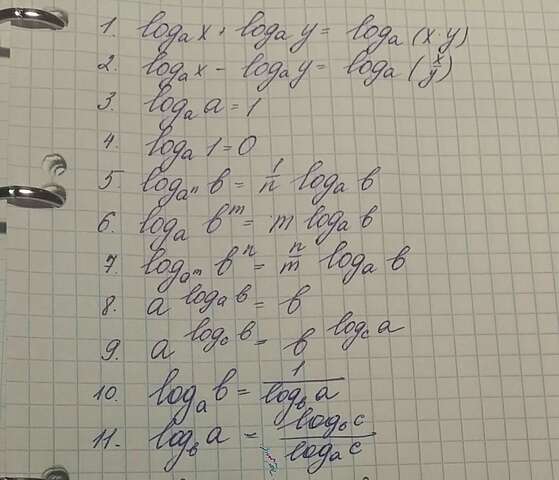 1. logₐ x + logₐ y = logₐ (x·y)
2. logₐ x - logₐ y = logₐ (x/y)
3. logₐ a = 1
4. logₐ 1 = 0
5. log_{aⁿ} b = 1/n logₐ b
6. logₐ b^m = m logₐ b
7. log_{a^m} b^n = n/m logₐ b
8. a^{logₐ b} = b
9. a^{log_c b} = b^{log_c a}
10. logₐ b = 1/log_b a
11. log_b a = log_b c/logₐ c